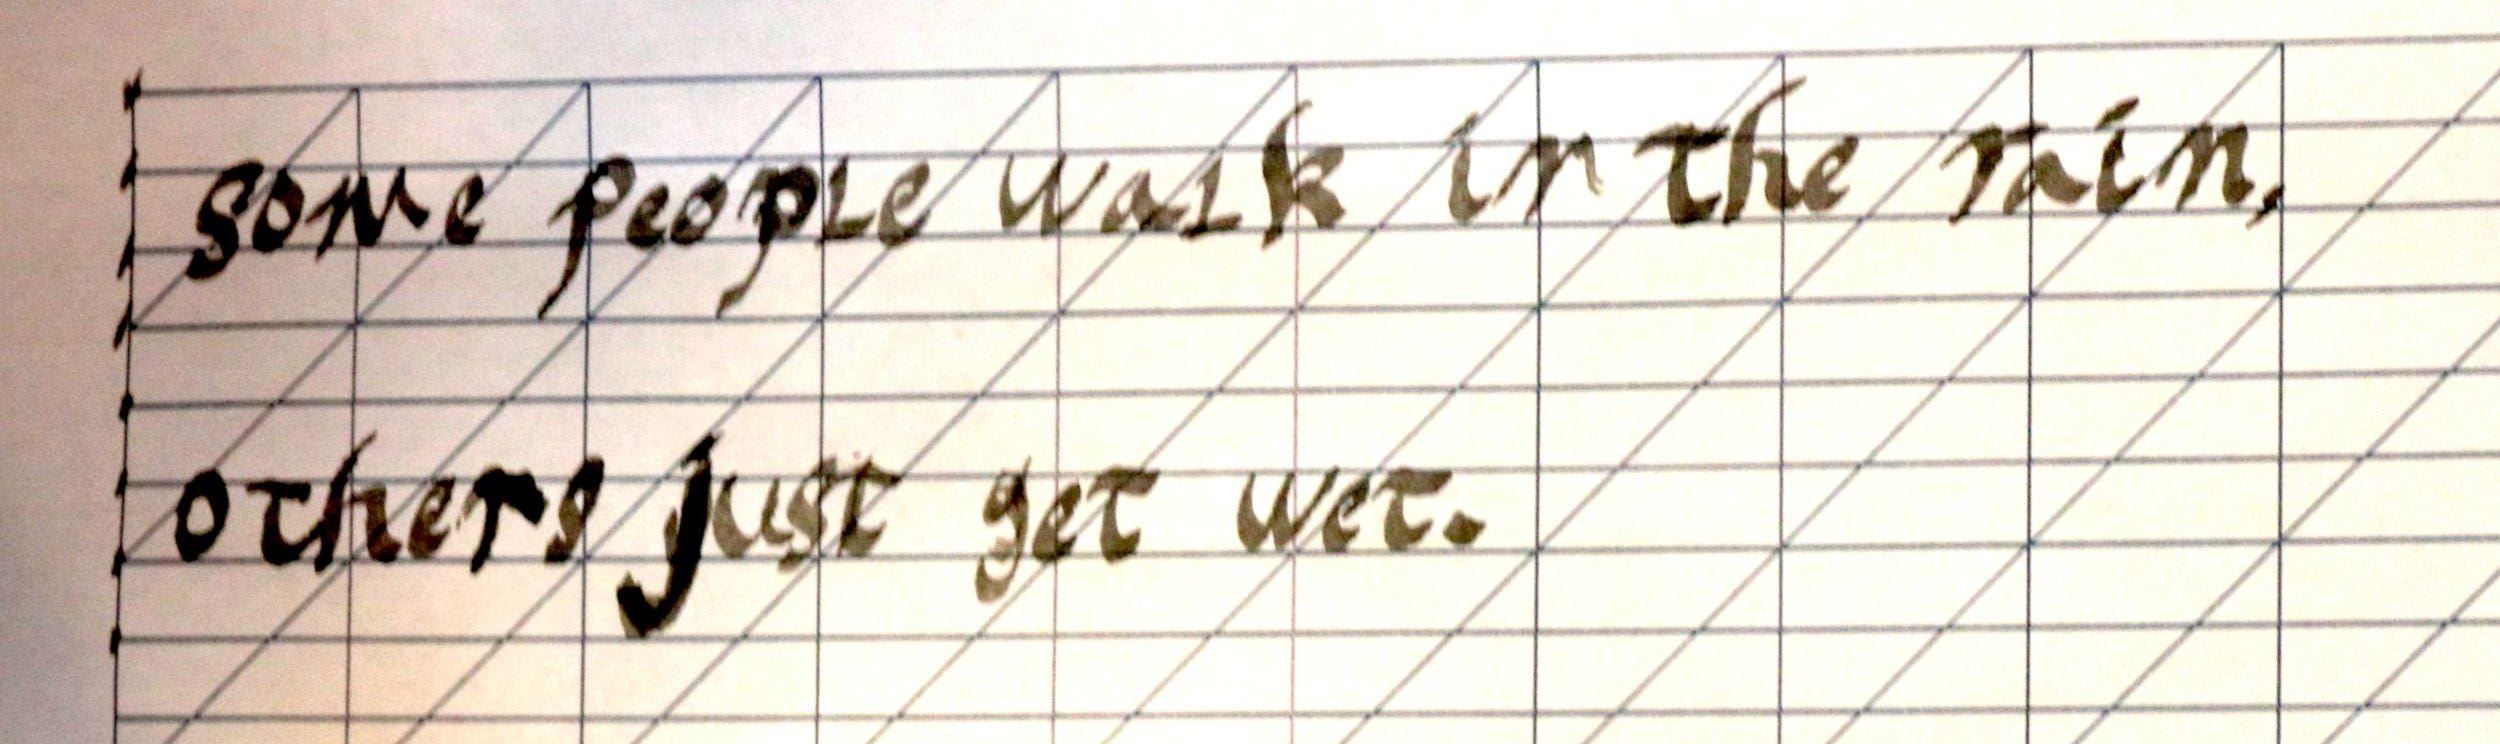 some people walk in the rain,
others just get wet.